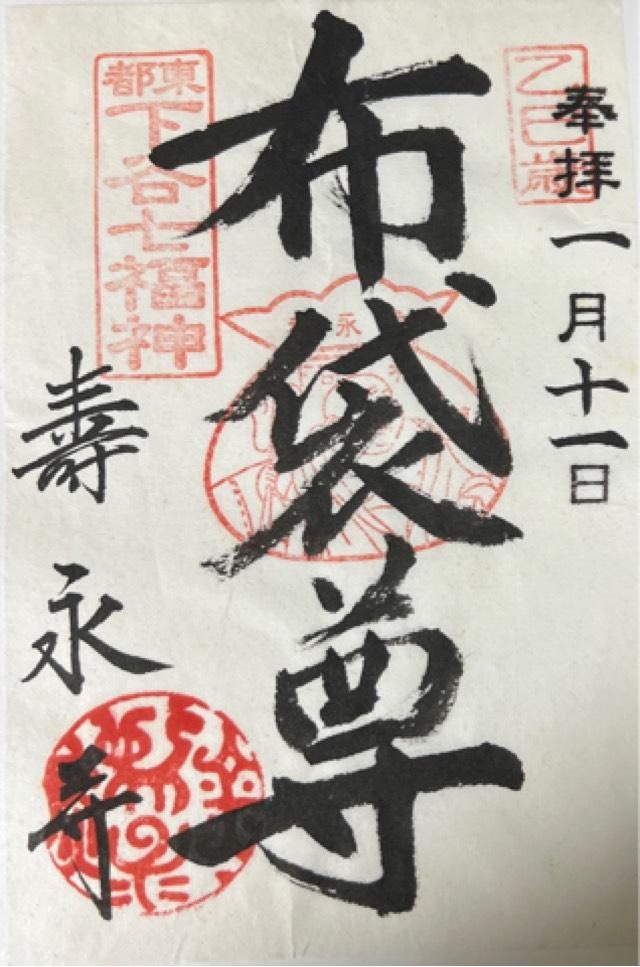 乙巳歳
奉拝
一月十一日
布袋尊
東都
下谷七福神
壽永寺